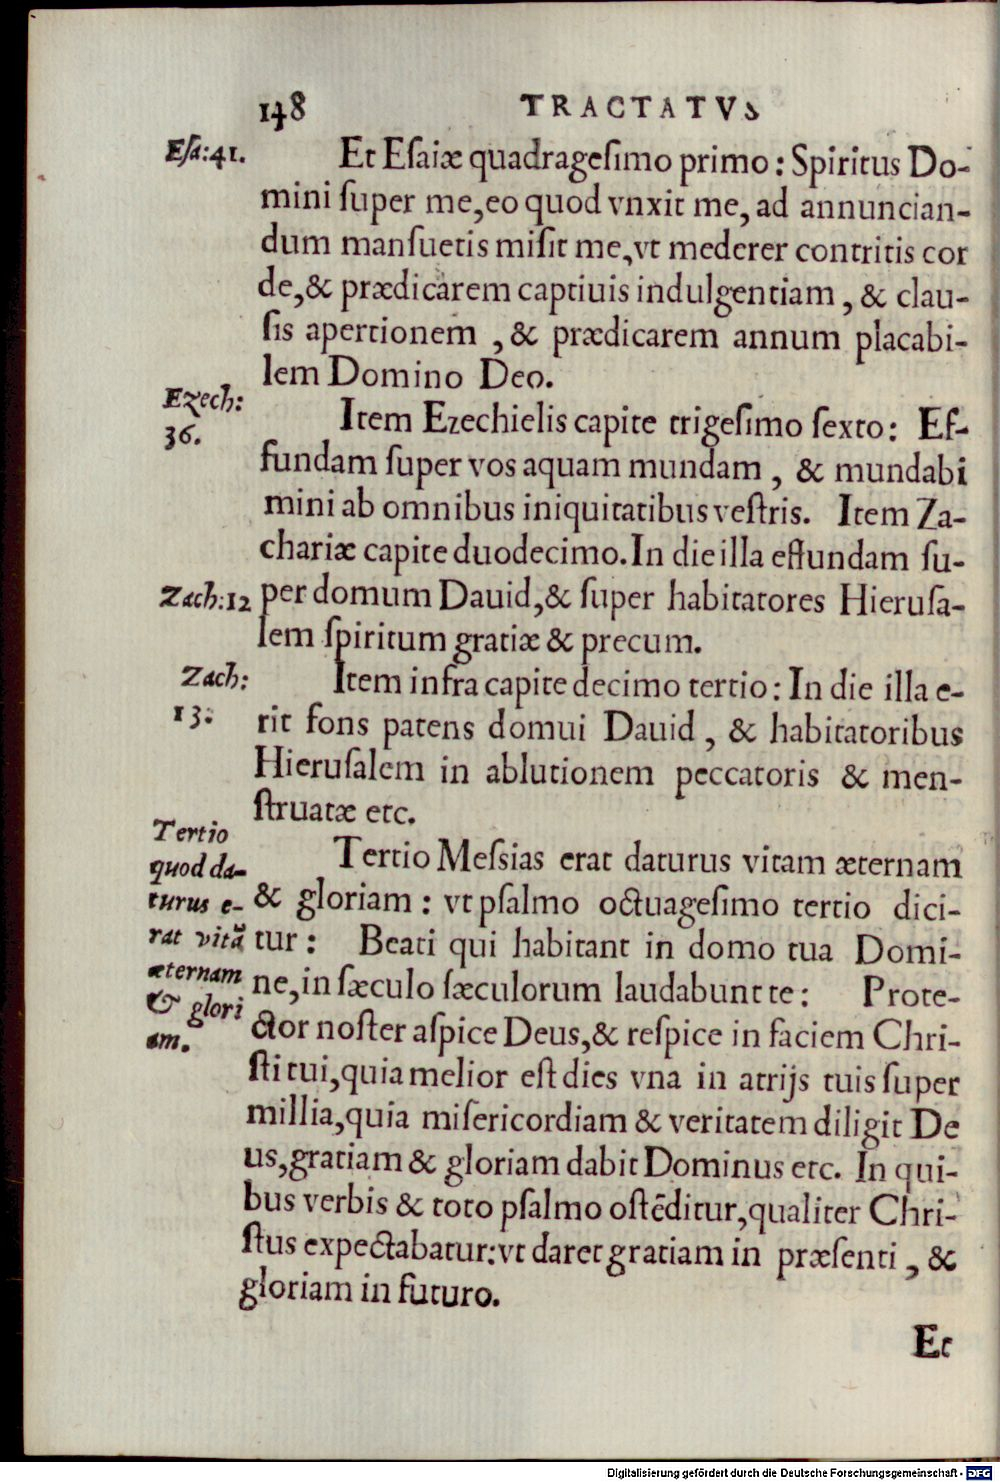 148 TRACTATVS
Esa:41.
Et Esaiæ quadragesimo primo: Spiritus Do-
mini super me,eo quod vnxit me, ad annuncian-
dum mansuetis misit me,vt mederer contritis cor
de,& prædicarem captiuis indulgentiam, & clau-
sis apertionem, & prædicarem annum placabi-
lem Domino Deo.
Ezech:
36.
Item Ezechielis capite trigesimo sexto: Ef-
fundam super vos aquam mundam, & mundabi
mini ab omnibus iniquitatibus vestris. Item Za-
chariæ capite duodecimo. In die illa effundam su-
Zach:12
per domum Dauid,& super habitatores Hierusa-
lem spiritum gratiæ & precum.
Zach:
13.
Item infra capite decimo tertio: In die illa e-
rit fons patens domui Dauid, & habitatoribus
Hierusalem in ablutionem peccatoris & men-
struatæ etc.
Tertio
quod da-
turus e-
rat vitã
æternam
& glori
am.
Tertio Messias erat daturus vitam æternam
& gloriam: vt psalmo octuagesimo tertio dici-
tur: Beati qui habitant in domo tua Domi-
ne,in sæculo sæculorum laudabunt te: Prote-
ctor noster aspice Deus,& respice in faciem Chri-
sti tui,quia melior est dies vna in atrijs tuis super
millia,quia misericordiam & veritatem diligit De
us,gratiam & gloriam dabit Dominus etc. In qui-
bus verbis & toto psalmo ostẽditur,qualiter Chri-
stus expectabatur:vt daret gratiam in præsenti, &
gloriam in futuro.
Et
Digitalisierung gefördert durch die Deutsche Forschungsgemeinschaft - DFG